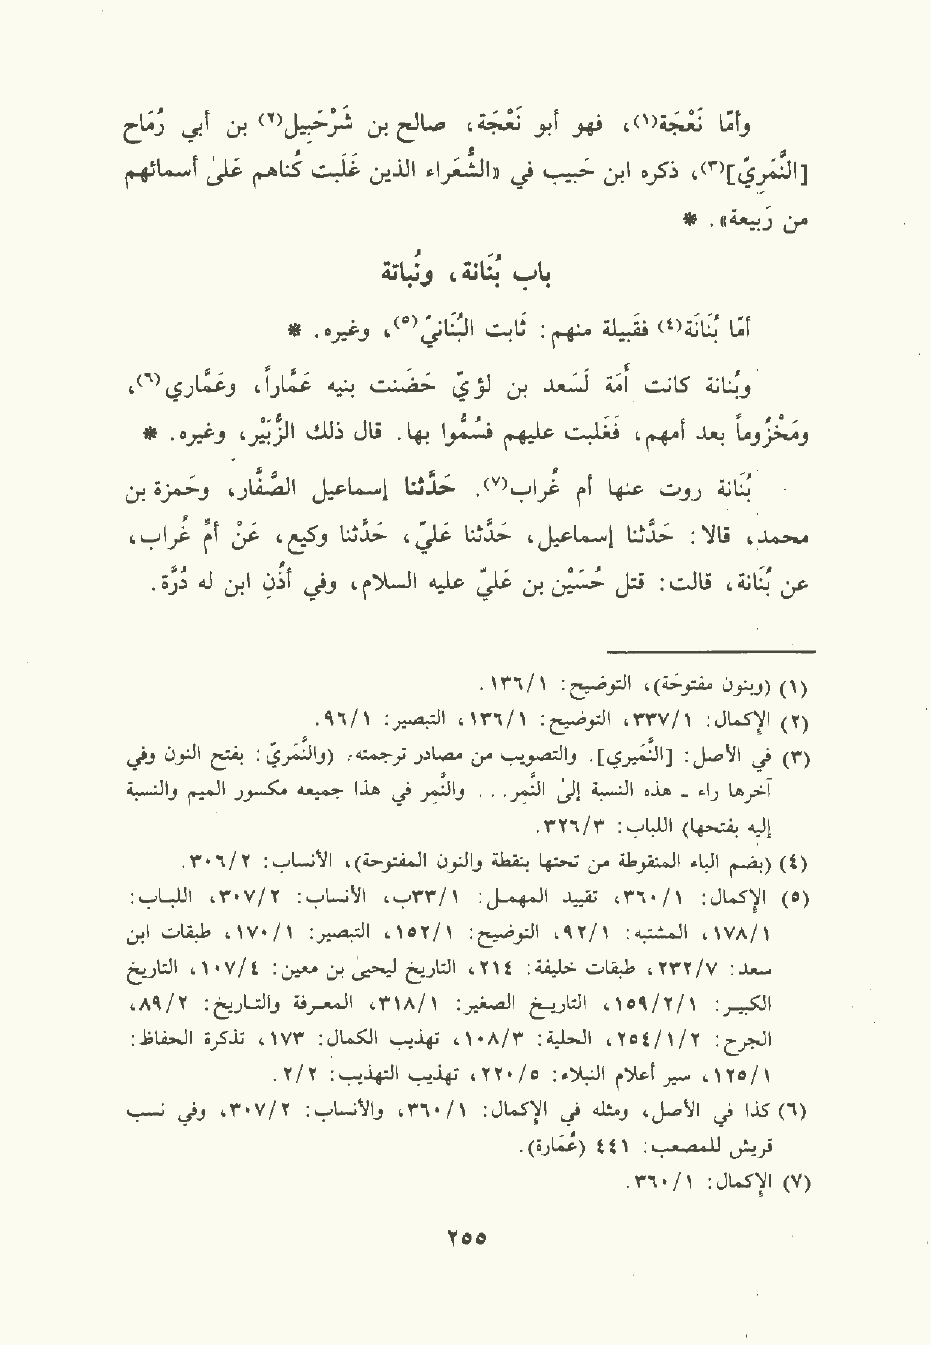 وأمّا نَعْجَة(١)، فهو أبو نَعْجَة، صالح بن شَرْحَبِيل(٢) بن أبي رُمَاح
[النُّمَرِيّ](٣)، ذكره ابن حَبيب في «الشُّعَراء الذين غَلَبت كُناهم علىٰ أسمائهم
من رَبيعة». *
باب بُنَانة، ونُباتة
أمّا بُنَانَة(٤) فقَبيلة منهم: ثَابت البُنَانيّ(٥)، وغيره. *
وبُنانة كانت أَمَة لسَعد بن لؤيّ حَضَنت بنيه عَمَّاراً، وعَمَاري(٦)،
ومَخْزُوماً بعد أمهم، فغَلبت عليهم فسُمُّوا بها. قال ذلك الزُّبَيْر، وغيره. *
بُنَانة روت عنها أم غُراب(٧). حَدَّثنا إسماعيل الصَّفَّار، وحَمزة بن
محمد، قالا: حَدَّثنا إسماعيل، حَدَّثنا عَليّ، حَدَّثنا وكيع، عَنْ أمّ غُراب،
عن بُنَانة، قالت: قتل حُسَيْن بن عَليّ عليه السلام، وفي أُذُن ابن له دُرَّة.
(١) (وبنون مفتوحَة)، التوضيح: ١٣٦/١.
(٢) الإكمال: ٣٣٧/١، التوضيح: ١٣٦/١، التبصير: ٩٦/١.
(٣) في الأصل: [النُّمَيري]. والتصويب من مصادر ترجمته. (والنَّمَرِيّ: بفتح النون وفي
آخرها راء ـ هذه النسبة إلىٰ النَّمِر... والنَّمِر في هذا جميعه مكسور الميم والنسبة
إليه بفتحها) اللباب: ٣٢٦/٣.
(٤) (بضم الباء المنقوطة من تحتها بنقطة والنون المفتوحة)، الأنساب: ٣٠٦/٢.
(٥) الإكمال: ٣٦٠/١، تقييد المهمل: ٣٣/١ب، الأنساب: ٣٠٧/٢، اللباب:
١٧٨/١، المشتبه: ٩٢/١، التوضيح: ١٥٢/١، التبصير: ١٧٠/١، طبقات ابن
سعد: ٢٣٢/٧، طبقات خليفة: ٢١٤، التاريخ ليحيىٰ بن معين: ١٠٧/٤، التاريخ
الكبير: ١٥٩/٢/١، التاريخ الصغير: ٣١٨/١، المعرفة والتاريخ: ٨٩/٢،
الجرح: ٢٥٤/١/٢، الحلية: ١٠٨/٣، تهذيب الكمال: ١٧٣، تذكرة الحفاظ:
١٢٥/١، سير أعلام النبلاء: ٢٢٠/٥، تهذيب التهذيب: ٢/٢.
(٦) كذا في الأصل، ومثله في الإكمال: ٣٦٠/١، والأنساب: ٣٠٧/٢، وفي نسب
قريش للمصعب: ٤٤١ (عُمَارة).
(٧) الإكمال: ٣٦٠/١.
٢٥٥